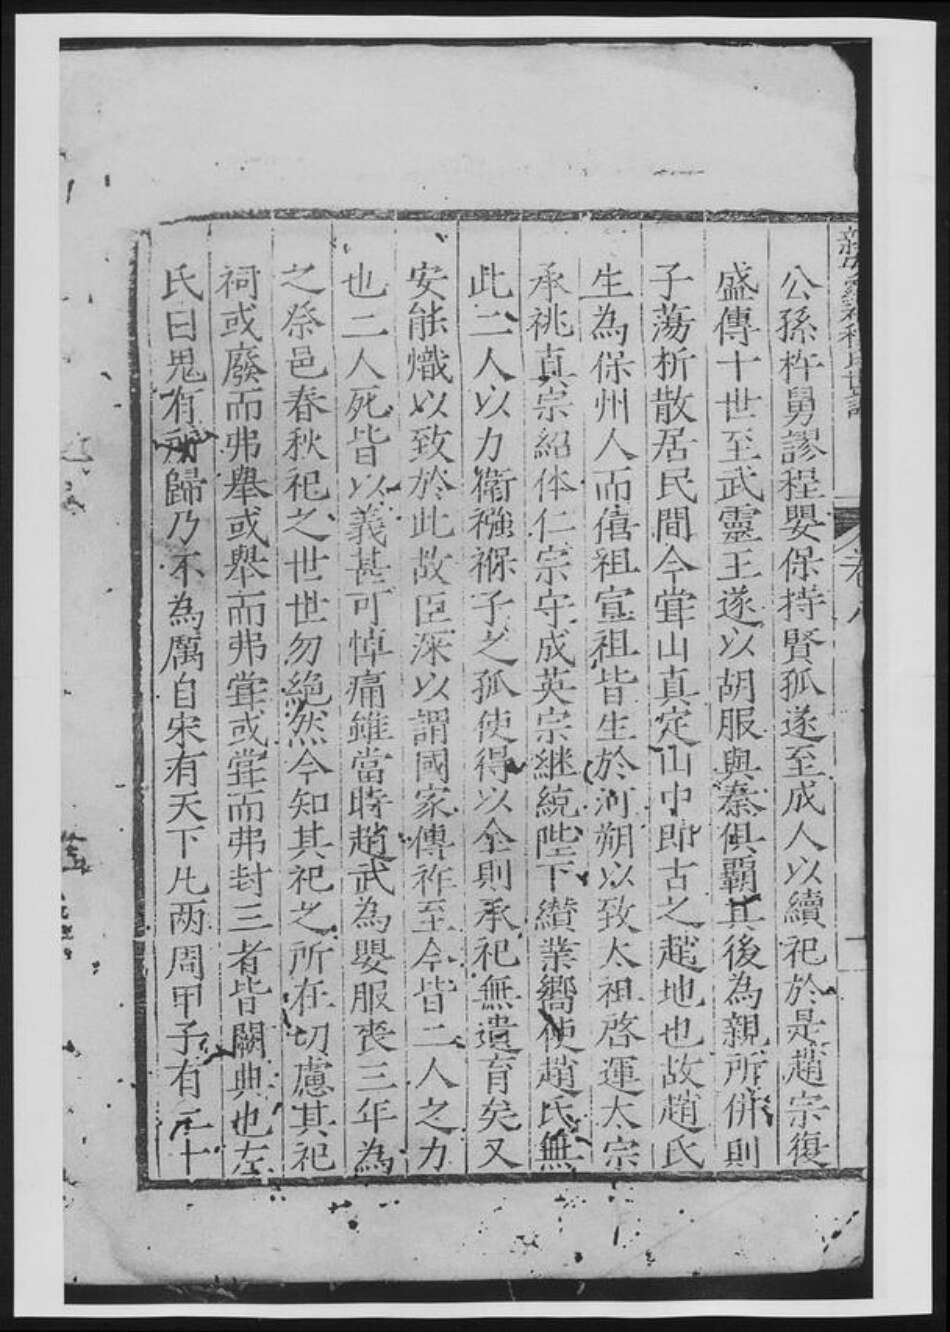 公孫杵臼謬程嬰保持賢孤遂至成人以續祀於是趙宗復
盛傳十世至武靈王遂以胡服與秦俱覇其後為親所併則
子蕩析散居民間今甞山真定山中即古之趙地也故趙氏
生為保州人而僖祖宣祖皆生於河朔以致太祖啓運太宗
承祧真宗紹体仁宗守成英宗継統陛下纉業嚮使趙氏無
此二人以力衛襁褓子之孤使得以全則承祀無遺育矣又
安能熾以致於此故臣深以謂國家傳祚至今皆二人之力
也二人死皆以義甚可悼痛雖當時趙武為嬰服喪三年為
之祭邑春秋祀之世世勿絶然今知其祀之所在切慮其祀
祠或廢而弗舉或舉而弗甞或甞而弗封三者皆闕典也左
氏曰鬼有所歸乃不為厲自宋有天下凡两周甲子有二十
卷八